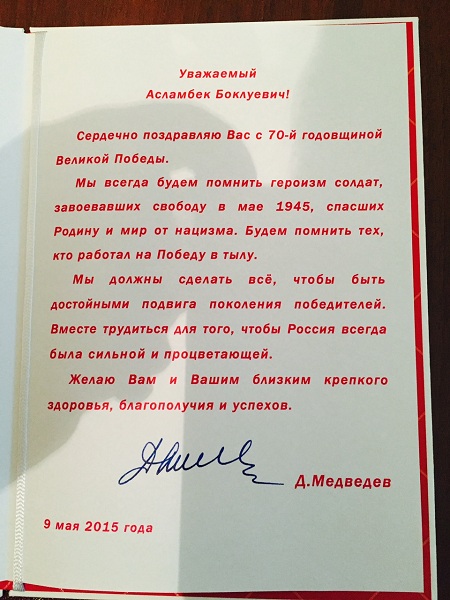 Уважаемый
Асламбек Боклуевич!
Сердечно поздравляю Вас с 70-й годовщиной
Великой Победы.
Мы всегда будем помнить героизм солдат,
завоевавших свободу в мае 1945, спасших
Родину и мир от нацизма. Будем помнить тех,
кто работал на Победу в тылу.
Мы должны сделать всё, чтобы быть
достойными подвига поколения победителей.
Вместе трудиться для того, чтобы Россия всегда
была сильной и процветающей.
Желаю Вам и Вашим близким крепкого
здоровья, благополучия и успехов.
Д.Медведев
9 мая 2015 года